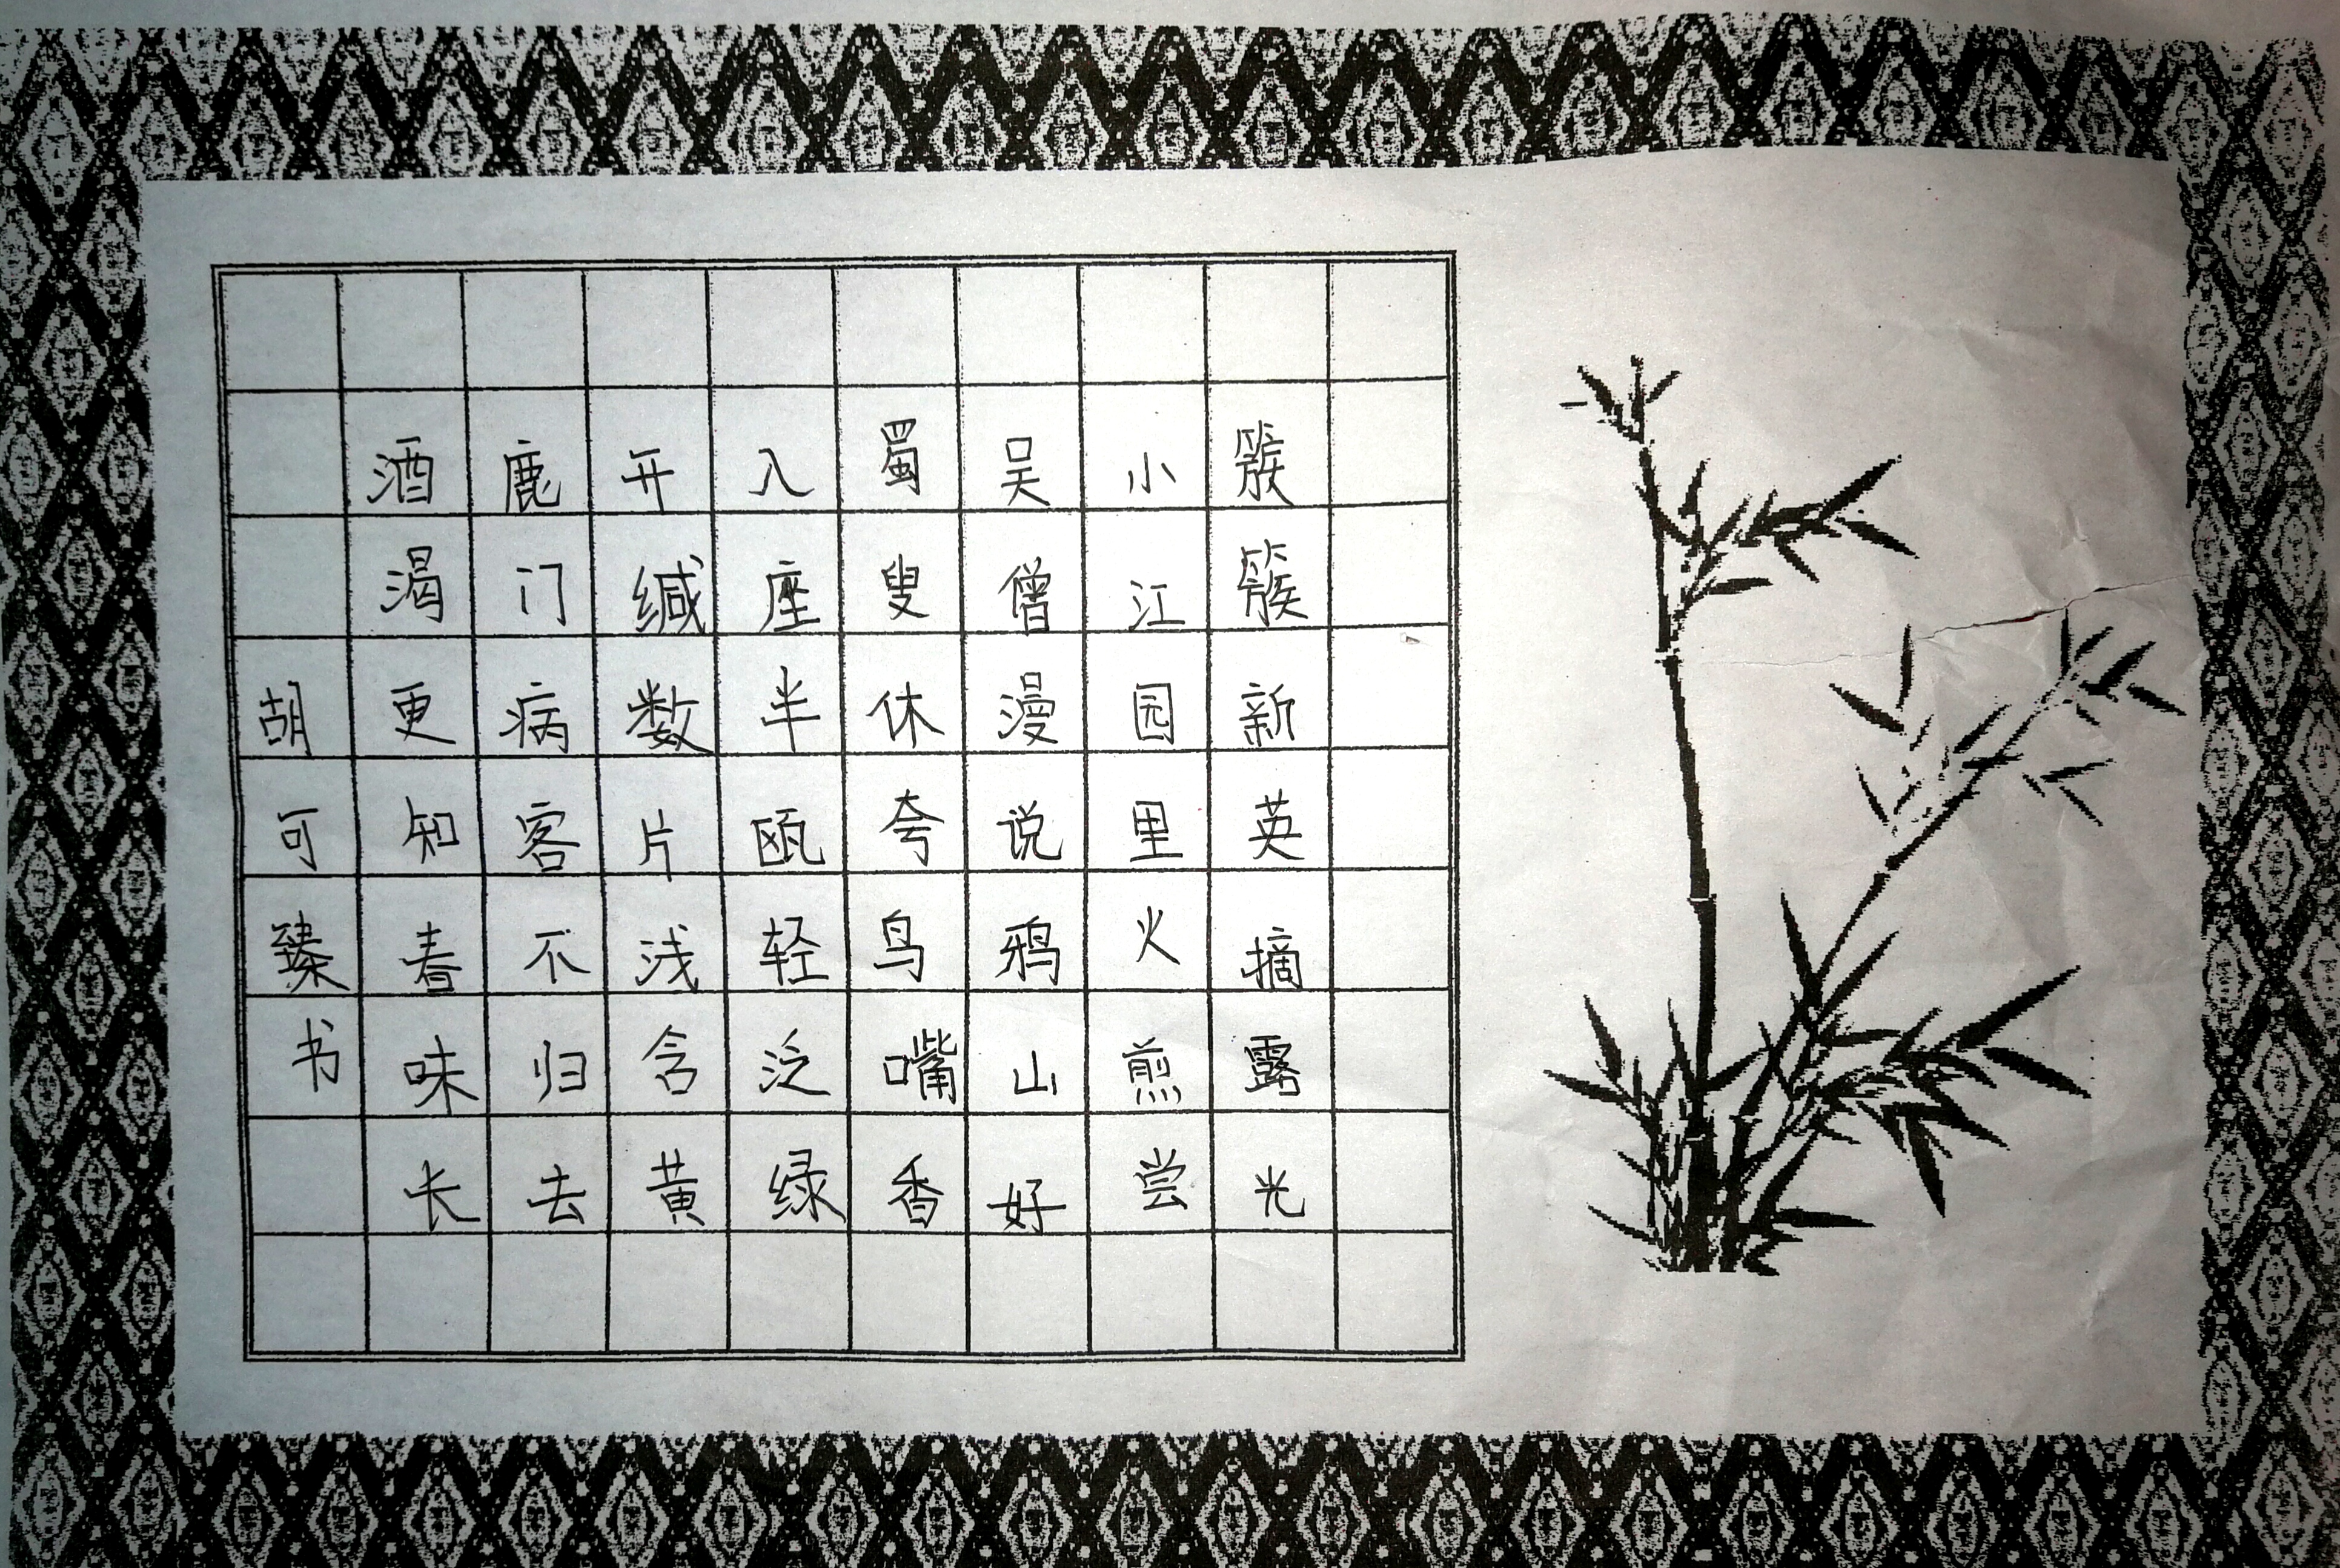 簇簇新英摘露光
小江园里火煎尝
吴僧漫说鸦山好
蜀叟休夸鸟嘴香
入座半瓯轻泛绿
开缄数片浅含黄
鹿门病客不归去
酒渴更知春味长
胡可臻书